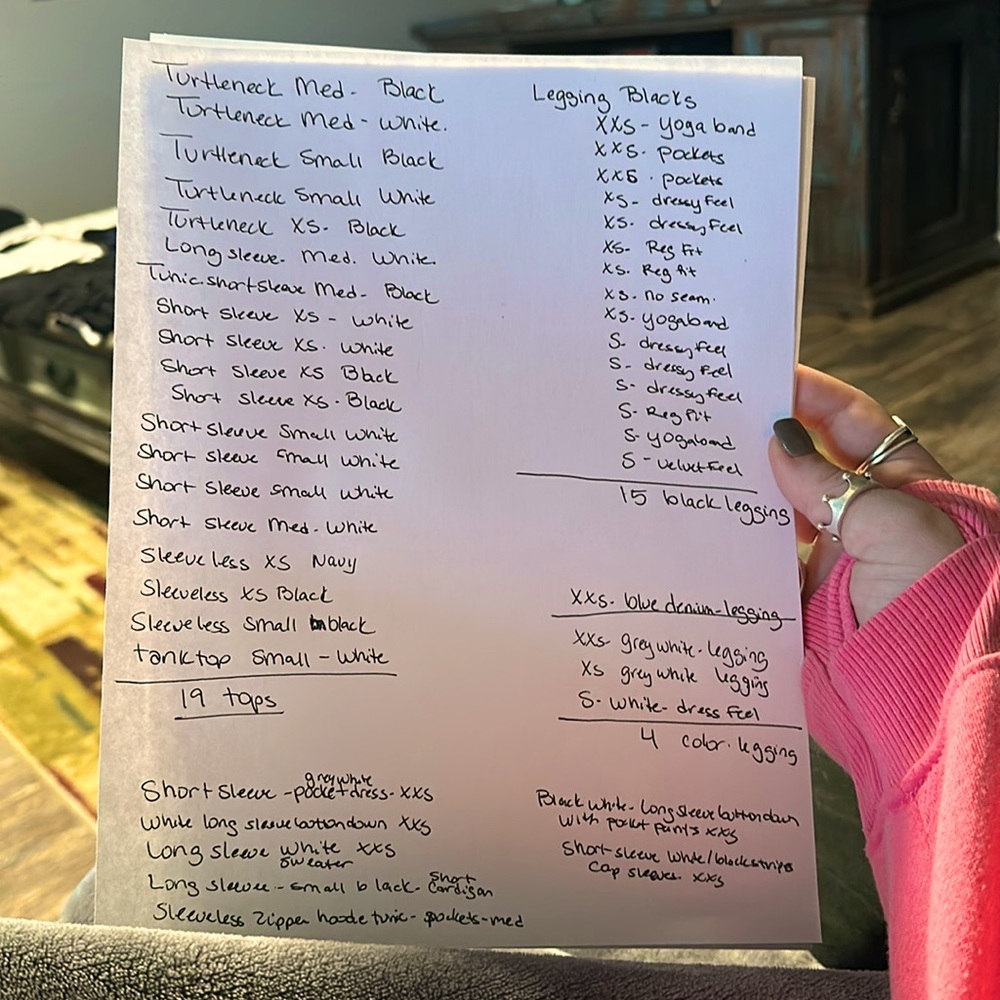 Turtleneck Med - Black
Turtleneck Med - White.
Turtleneck Small Black
Turtleneck Small White
Turtleneck XS - Black
Long sleeve. Med. White.
Tunic. short sleave Med - Black
Short sleeve XS - White
Short sleeve XS. White
Short sleeve XS Black
Short sleeve XS - Black
Short sleeve Small White
Short sleeve Small White
Short sleeve Small White
Short sleeve Med - White
Sleeveless XS Navy
Sleeveless XS Black
Sleeveless Small black
tanktop Small - White
19 tops
Short sleeve - grey white pocket dress - XXS
White long sleeve button down XXS
Long sleeve white XXS
sweater
Long sleeve - small black - Short Cardigan
Sleeveless Zipper hoode tunic - pockets - med
Legging Blacks
XXS - Yoga band
XXS - pockets
XXS - pockets
XS - dressy feel
XS - dressy feel
XS - Reg Fit
XS. Reg fit
XS - no seam.
XS - yogaband
S - dressy feel
S - dressy feel
S - dressy feel
S - Reg fit
S - yogaband
S - velvet feel
15 black legging
XXS - blue denium - legging
XXS - grey white - legging
XS grey white legging
S - White - dress feel
4 color - legging
Black white - Long sleeve button down
with pocket pants XXS
Short sleeve white/black strips
Cap sleeves. XXS